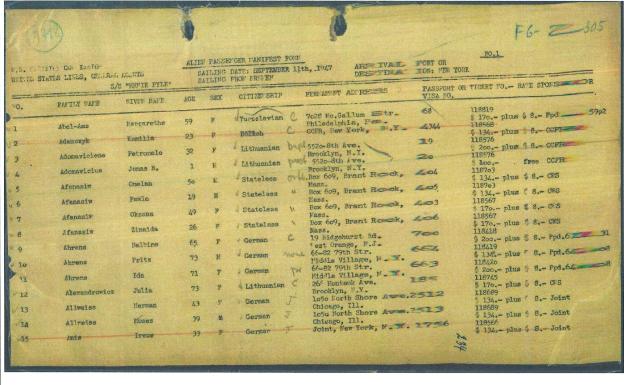 FG- 305
NO.1
UNITED STATES LINES, GENERAL AGENTS
S/S "ERNIE PYLE"
ALIEN PASSENGER MANIFEST FORM
SAILING DATE: SEPTEMBER 11th, 1947
SAILING FROM BREMEN
ARRIVAL PORT OR
DESTINATION: NEW YORK
NO. FAMILY NAME GIVEN NAME AGE SEX CITIZENSHIP PERMANENT ADDRESS PASSPORT OR TICKET NO.- RATE SPONSOR
VISA NO.
1 Abel-Ams Margarethe 59 F Yugoslavian C 7028 No. Gallum Str. 68 118819
Philadelphia, $ 170.- plus $ 8.- Ppd. 5792
2 Adamczyk Kamilla 23 F CCFR, New York, N.Y. 4344 118568
$ 134.- plus $ 8.- CCFR
3 Adomaviciene Petronele 32 F Lithuanian 5520-8th Ave. 19 118576
Brooklyn, N.Y. $ 200.- plus $ 8.- CCFR
4 Adomavicius Jonas R. 1 M Lithuanian 5520-8th Ave. 20 118576
Brooklyn, N.Y. $ 100.- free CCFR
5 Afanasiw 54 M Stateless Box 609, Brant Rock, 404
Mass. $ 134.- plus $ 8.- CWS
6 Afanasiw Pawlo 19 M Stateless " Box 609, Brant Rock, 405
Mass. $ 134.- plus $ 8.- CWS
7 Afanasiw Oksana 49 F Stateless " Box 609, Brant Rock, 403 118567
Mass. $ 170.- plus $ 8.- CWS
8 Afanasiw Zinaida 26 F Stateless " Box 609, Brant Rock, 406 118567
Mass. $ 170.- plus $ 8.- CWS
9 Ahrens Balbine 65 F German C 19 Ridgehurst Rd. 700 118418
West Orange, N.J. $ 200.- plus $ 8.- Ppd.
10 Ahrens Fritz 73 M German 66-82 79th Str. 664
Middle Village, N.Y. $ 134.- plus $ 8.- Ppd.
11 Ahrens Ida 71 F German 66-82 79th Str. 663 118420
Middle Village, N.Y. $ 200.- plus $ 8.- Ppd.
12 Alexandrowicz Julia 73 F Lithuanian C 118745
Brooklyn, N.Y. $ 170.- plus $ 8.- CWS
13 Allweiss Herman 43 German J 1050 North Shore Ave. 2512 118689
Chicago, Ill. $ 134.- plus $ 8.- Joint
14 Allweiss Moses 39 M German J 1050 North Shore Ave. 2513 118689
Chicago, Ill. $ 134.- plus $ 8.- Joint
15 Irene 33 F German J Joint, New York, N.Y. 1756 118566
$ 134.- plus $ 8.- Joint